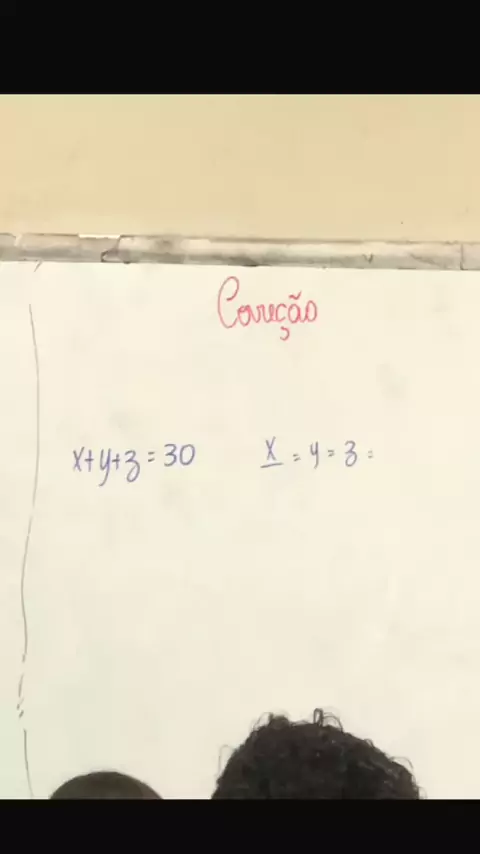 Correção
x+y+z=30 x = y = z =